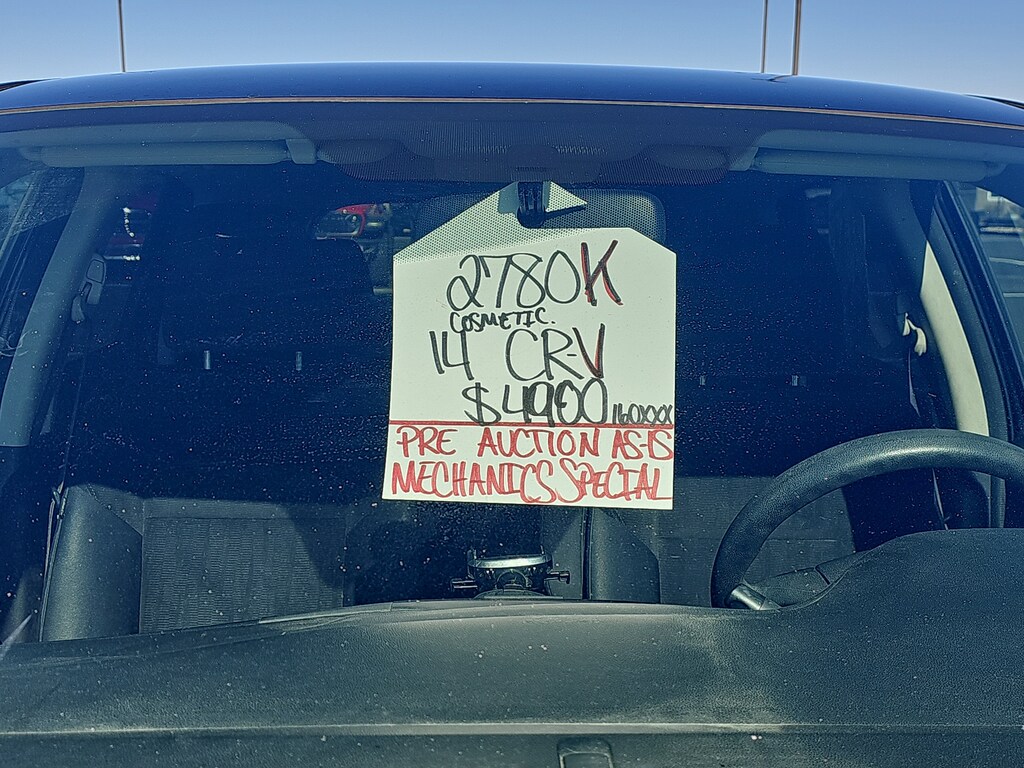 2780K
COSMETIC.
14 CR-V
$4900 160XXX
PRE AUCTION AS-IS
MECHANICS SPECIAL